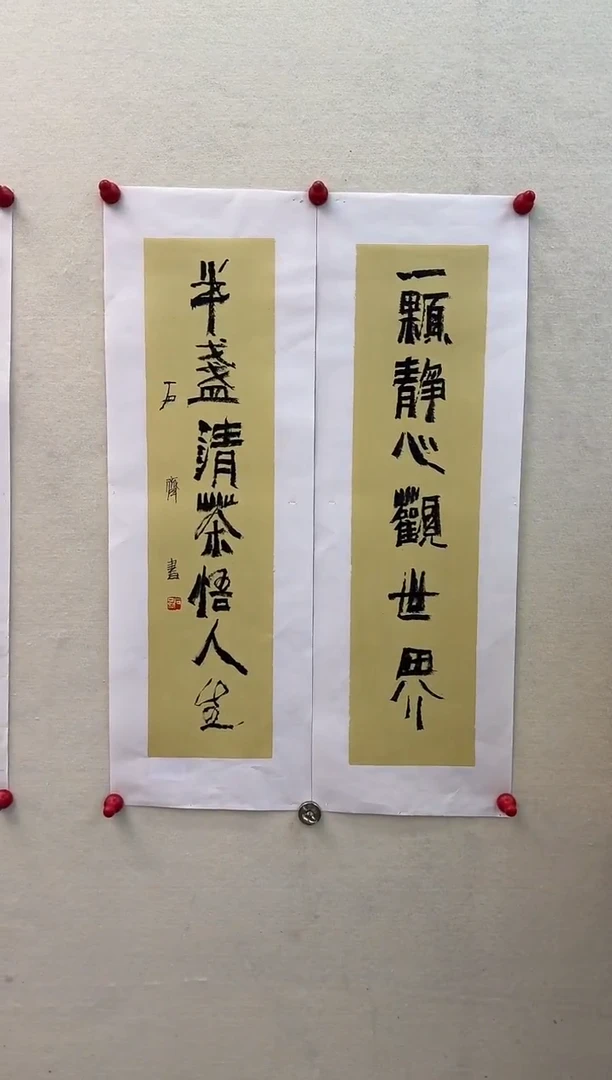 一顆靜心觀世界
半盞清茶悟人生
石齊書